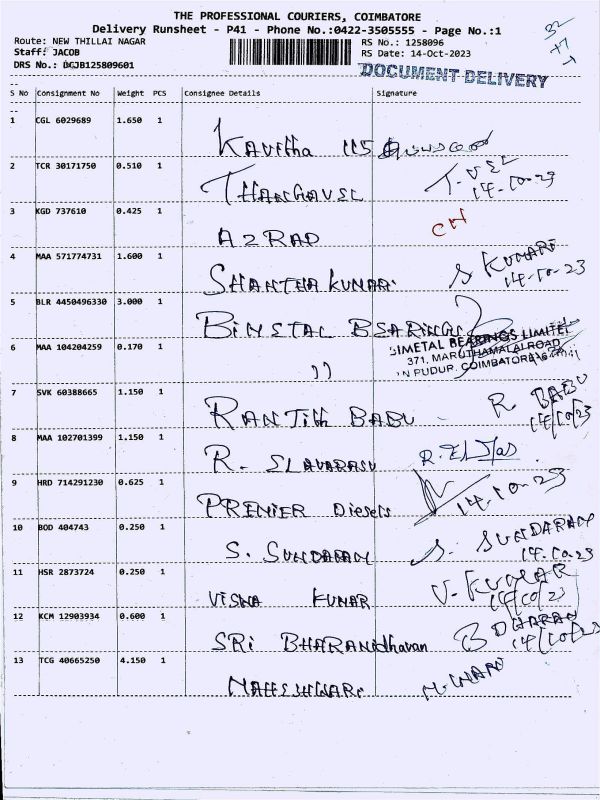 THE PROFESSIONAL COURIERS, COIMBATORE
Delivery Runsheet - P41 - Phone No.:0422-3505555 - Page No.:1
Route: NEW THILLAI NAGAR RS No.: 1258096
Staff: JACOB RS Date: 14-Oct-2023
DRS No.: DGJB125809601 DOCUMENT DELIVERY
32
+7
S No Consignment No Weight PCS Consignee Details Signature
1 CGL 6029689 1.650 1
Kavitha 115
2 TCR 30171750 0.510 1
THANGAVEL T. VEL
14-10-23
3 KGD 737610 0.425 1
AZRAD CH
4 MAA 571774731 1.600 1
SHANTHA KUMARI S KUMARI
14-10-23
5 BLR 4450496330 3.000 1
BIMETAL BEARINGS
6 MAA 104204259 0.170 1
BIMETAL BEARINGS LIMITED
371, MARUTHAMALAI ROAD
PUDUR, COIMBATORE
11
7 SVK 60388665 1.150 1
RANJITH BABU R BABU
14/10/23
8 MAA 102701399 1.150 1
R. SLAVARASU
9 HRD 714291230 0.625 1
PREMIER Diesels 14-10-23
10 BOD 404743 0.250 1
S. SUNDARAM S. SUNDARAM
14-10-23
11 HSR 2873724 0.250 1
VISWA KUMAR V. KUMAR
14/10/23
12 KCM 12903934 0.600 1
SRI BHARANIdharan B DHARAN
14/10/23
13 TCG 40665250 4.150 1
MAHESHWARI M. WARI